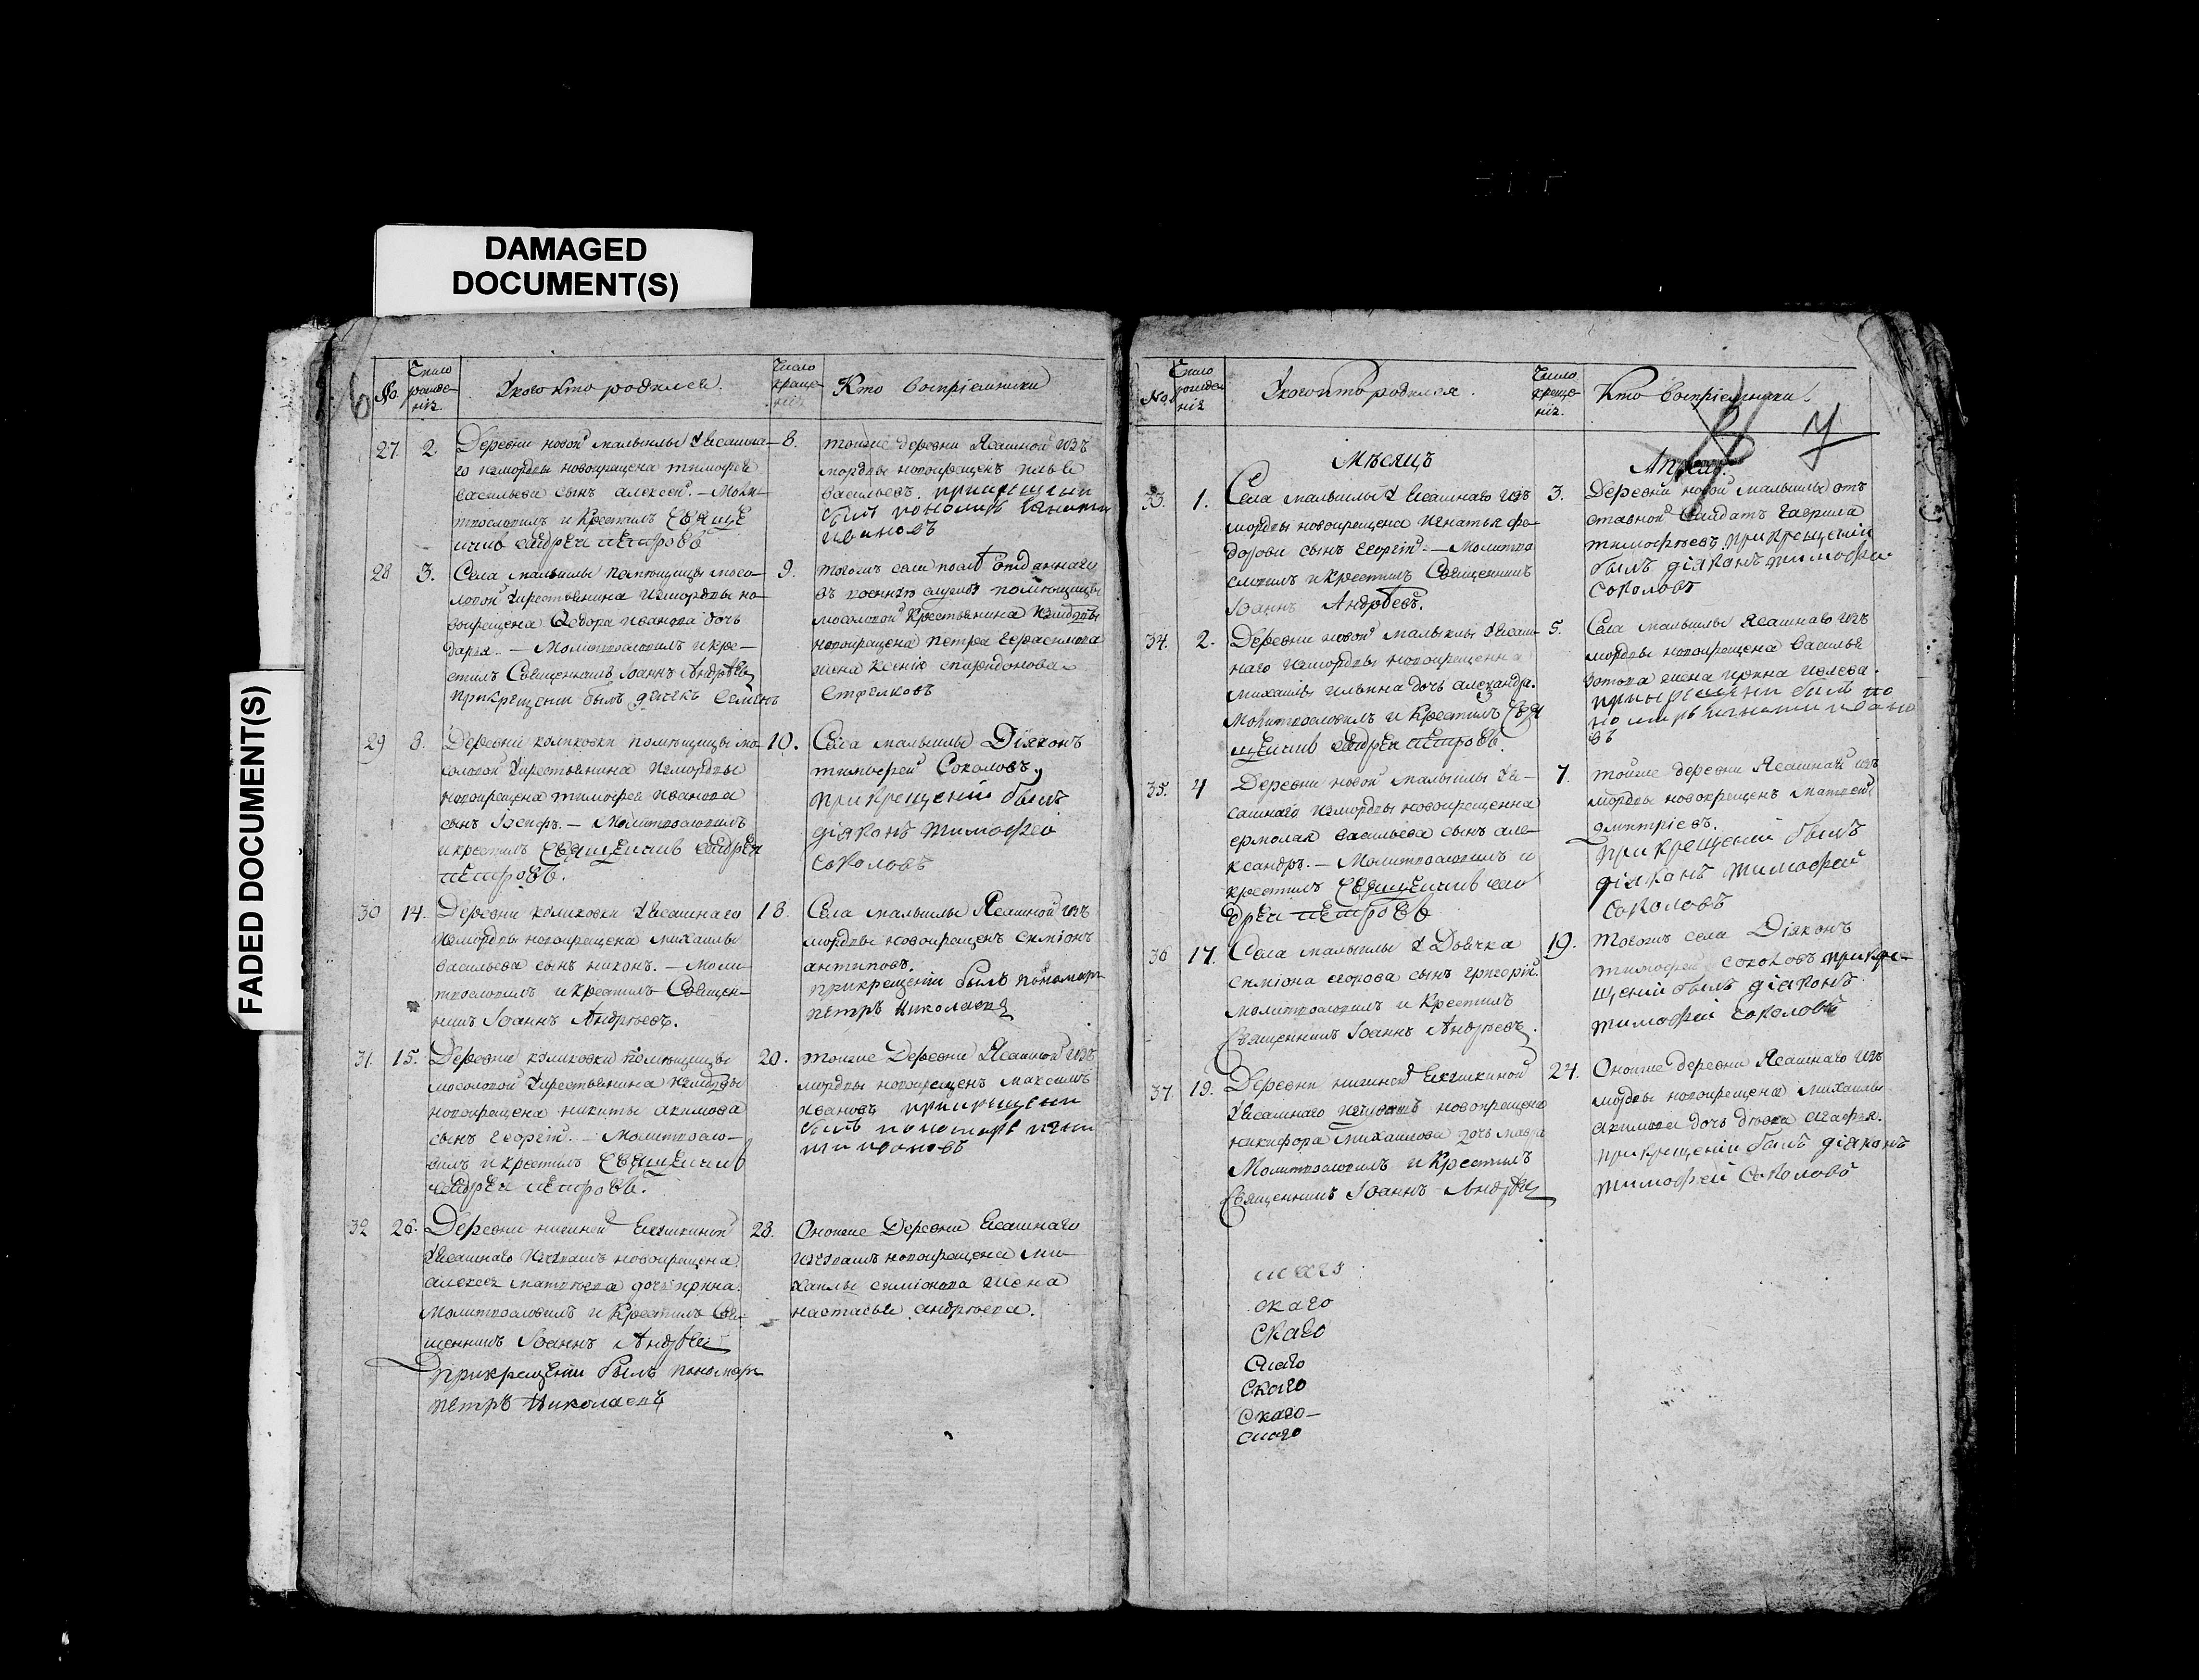 DAMAGED
DOCUMENT(S)
FADED DOCUMENT(S)
6
№
Число рожденія
У кого кто родился.
Число крещенія
Кто воспріемники
27. 2.
Деревни новой малыклы У ясашна-
го измордвы новокрещена тимофея
васильева сынъ алексей. — Моли-
твословилъ и крестилъ Священ
никъ андрей петровъ
8.
тоиже деревни Ясашной изъ
мордвы новокрещенъ
васильевъ. прикрещении
былъ пономарь игнати
ивановъ
28 3.
Села малыклы помещицы мосо-
ловой Укрестьянина измордвы но-
вокрещена Федора иванова дочь
дарья. — Молитвословилъ и кре-
стилъ Священникъ Іоаннъ Андреевъ
прикрещении былъ дячекъ Семенъ
9.
тогожъ села отданнаго
въ военную службу помещицы
мосоловой крестьянина измордвы
новокрещена петра герасимова
жена ксенія спиридонова
Стрелковъ
29 8.
Деревни помещицы мо-
соловой Укрестьянина измордвы
новокрещена тимофея иванова
сынъ Іосифъ. — Молитвословилъ
и крестилъ Священникъ андрей
петровъ.
10.
Села малыклы Діяконъ
тимофей Соколовъ,
прикрещеніи былъ
діяконъ тимофей
соколовъ
30 14.
Деревни Уясашнаго
измордвы новокрещена михаилы
васильева сынъ никонъ. — Моли-
твословилъ и крестилъ Священ-
никъ Іоаннъ Андреевъ.
18.
Села малыклы Ясашной изъ
мордвы новокрещенъ симіонъ
антиповъ.
прикрещеніи былъ пономарь
петръ Николаевъ
31. 15.
Деревни помещицы
мосоловой Укрестьянина измордвы
новокрещена никиты акимова
сынъ георгій. — Молитвосло-
вилъ и крестилъ Священникъ
андрей петровъ.
20.
тоиже Деревни Ясашной изъ
мордвы новокрещенъ максимъ
ивановъ прикрещении
былъ пономарь игна
ти ивановъ
32 26.
Деревни нижней
Уясашнаго новокрещена
алексея матвеева дочь ирина.
Молитвословилъ и Крестилъ Свя-
щенникъ Іоаннъ Андреевъ
прикрещении былъ пономарь
петръ Николаевъ
28.
Оноиже Деревни Ясашнаго
новокрещена ми-
хаилы симіонова жена
настасья андреева.
7
№
Число рожденія
У кого кто родился.
Число крещенія.
Кто воспріемники.
Месяцъ
Апрель.
33. 1.
Села малыклы Уясашнаго изъ
мордвы новокрещена игнатья фе-
дорова сынъ георгій. — Молитво
словилъ и крестилъ Священникъ
Іоаннъ Андреевъ.
3.
Деревни новой малыклы от
ставной Салдатъ гаврила
тимофеевъ прикрещеніи
былъ діяконъ тимофей
соколовъ
34. 2.
Деревни новой малыклы Уясаш-
наго измордвы новокрещенна
михаилы ильина дочь александра.
Молитвословилъ и Крестилъ Свя
щенникъ андрей петровъ.
5.
Села малыклы Ясашнаго изъ
мордвы новокрещена василья
жена ирина
прикрещении былъ по
номарь игнати ивано
въ
35. 4
Деревни новой малыклы Уя-
сашнаго измордвы новокрещенна
ермолая васильева сынъ але-
ксандръ. — Молитвословилъ и
крестилъ Священникъ ан
дрей петровъ
7.
тоиже деревни Ясашной изъ
мордвы новокрещенъ матвей
дмитріевъ.
прикрещеніи былъ
діяконъ тимофей
соколовъ
36 17.
Села малыклы У Дьячка
симіона егорова сынъ григорій.
молитвословилъ и Крестилъ
Священникъ Іоаннъ Андреевъ.
19.
тогожъ села Діяконъ
тимофей соколовъ прикре-
щеніи былъ діяконъ
тимофей соколовъ
37. 19.
Деревни нижней
Уясашнаго новокрещена
никифора михаилова дочь мавра
Молитвословилъ и Крестилъ
Священникъ Іоаннъ Андреевъ
24.
Оноиже деревни Ясашнаго изъ
мордвы новокрещена михаилы
акимова дочь девка агафья.
прикрещеніи былъ діяконъ
тимофей Соколовъ
скаго
Скаго
Скаго
Скаго
Скаго—
скаго